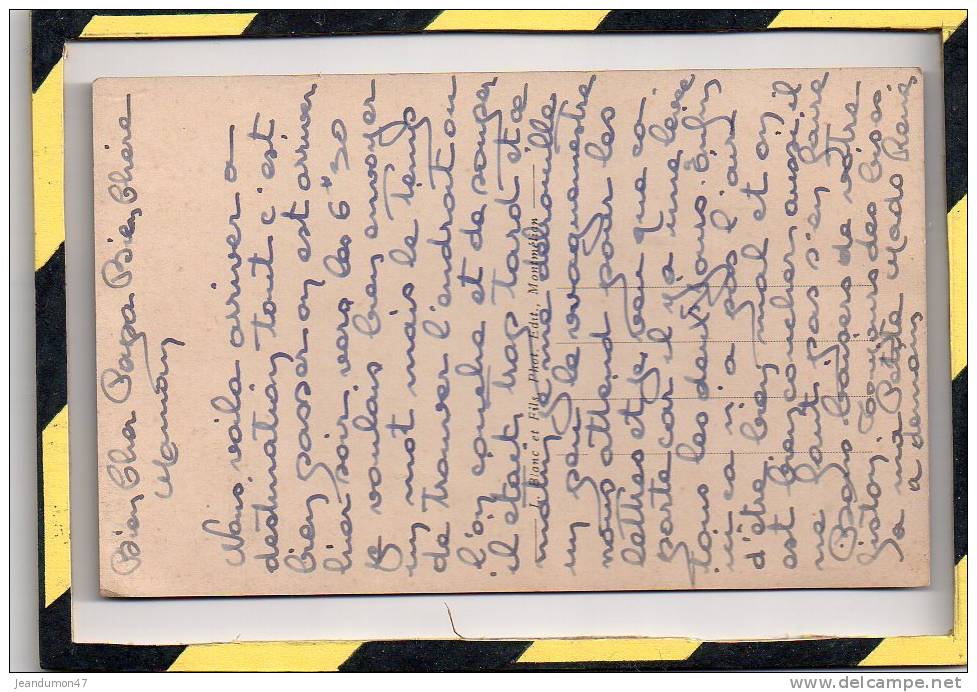 Bien Cher Papa Bien Chère
Maman
Nous voila arriver a
destination tout c'est
bien passer on est arriver
hier soir vers les 6h30
je voulais bien envoyer
un mot mais le temps
de trouver l'endroit ou
l'on couche et de souper
il etait trop tard et ce
matin je me debrouille
un peu le vaguemestre
nous attend pour les
lettres et je peu que ca
parte car il n'a une levé
tous les deux jours. Enfin
ca n'a pas l'air
d'être bien mal et on
est bien coucher aussi il
ne faut pas s'en faire
Bons baisers de votre
toujours des bises
a ma Petite Mado
a demain
de Blanc et Fils, Phot. Edit., Montmélian
jeandumon47
delcampe.net